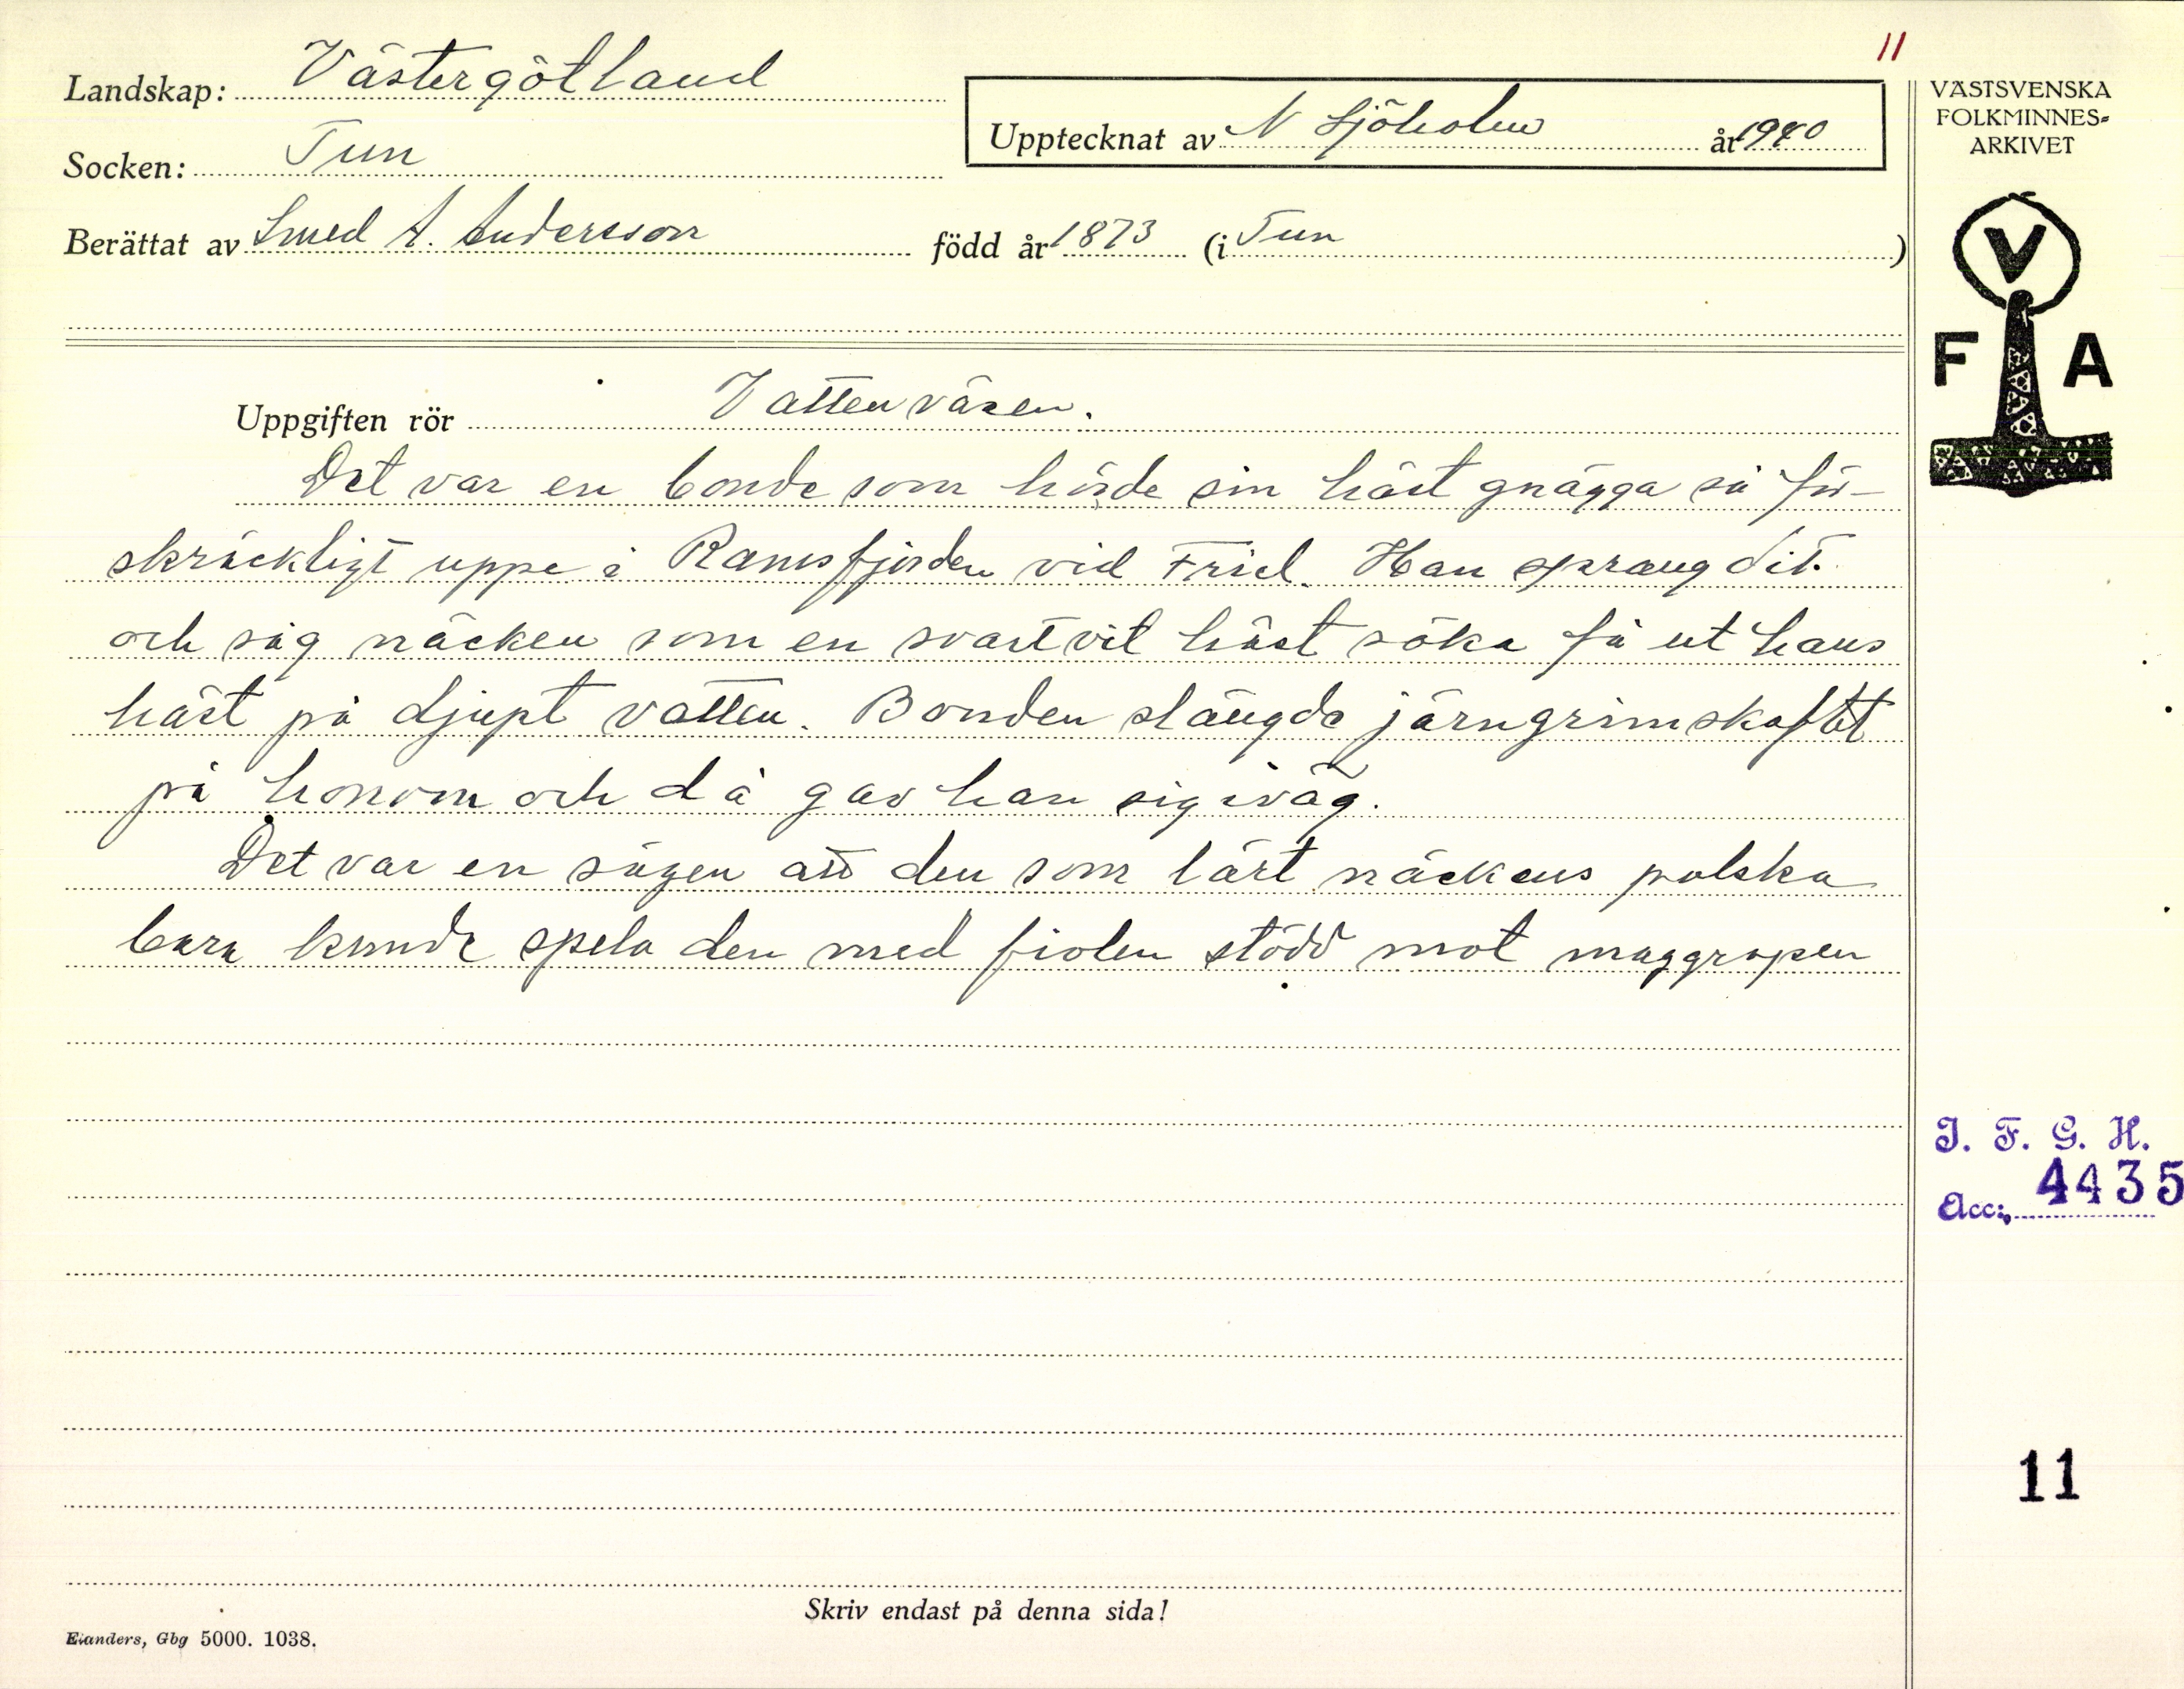 11
Landskap: Västergötland
Upptecknat av N Sjöholm år 1940
Socken: Tun
Berättat av Smed A. Andersson född år 1873 (i Tun)
VÄSTSVENSKA
FOLKMINNES-
ARKIVET
V
F A
Uppgiften rör Vattenväsen.
Det var en bonde som hörde sin häst gnägga så för-
skräckligt uppe i Ramsfjorden vid Friel. Han sprang dit.
och såg näcken som en svartvit häst söka få ut hans
häst på djupt vatten. Bonden slängde järngrimskaftet
på honom och då gav han sig iväg.
Det var en sägen att den som lärt näckens polska
bara kunde spela den med fiolen stödd mot maggropen
I. F. G. H.
Acc: 4435
11
Skriv endast på denna sida!
Elanders, Gbg 5000. 1038.